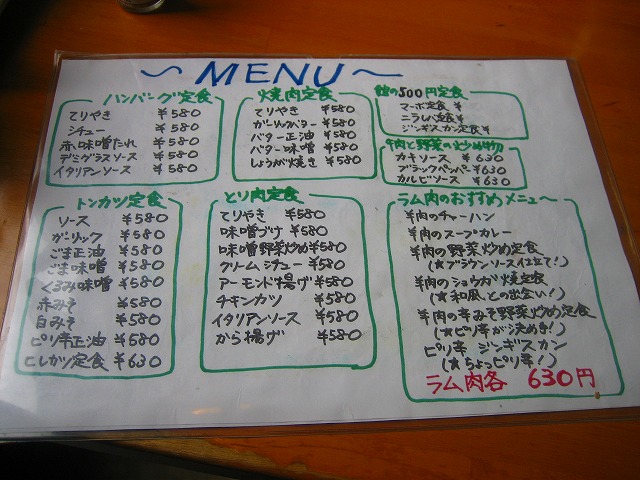 〜MENU〜
ハンバーグ定食
てりやき ¥580
シチュー ¥580
赤味噌たれ ¥580
デミグラスソース ¥580
イタリアンソース ¥580
焼肉定食
てりやき ¥580
ガーリックバター ¥580
バター正油 ¥580
バター味噌 ¥580
しょうが焼き ¥580
館の500円定食
マーボ定食 ¥
ニラレバ定食 ¥
ジンギスカン定食 ¥
牛肉と野菜の炒め物
カキソース ¥630
ブラックペッパー ¥630
カルビソース ¥630
トンカツ定食
ソース ¥580
ガーリック ¥580
ごま正油 ¥580
ごま味噌 ¥580
くるみ味噌 ¥580
赤みそ ¥580
白みそ ¥580
ピリ辛正油 ¥580
ヒレカツ定食 ¥630
とり肉定食
てりやき ¥580
味噌づけ ¥580
味噌野菜炒め ¥580
クリームシチュー ¥580
アーモンド揚げ ¥580
チキンカツ ¥580
イタリアンソース ¥580
から揚げ ¥580
ラム肉のおすすめメニュ〜
羊肉のチャーハン
羊肉のスープカレー
羊肉の野菜炒め定食
(☆ブラウンソース仕立て!)
羊肉のショウガ焼定食
(☆和風との出会い!)
羊肉の辛みそ野菜炒め定食
(☆ピリ辛が決めき!)
ピリ辛 ジンギスカン
(☆ちょっピリ辛!)
ラム肉各 630円